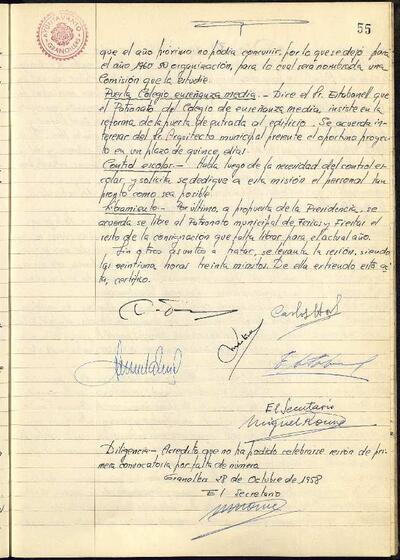 55
AYUNTAMIENTO
GRANOLLERS
que el año próximo no podia concurrir, por lo que se dejó para
el año 1960 su organización, para lo cual será nombrada una
Comisión que la estudie.
Puerta Colegio enseñanza media.- Dice el Sr. Estabanell que
el Patronato del Colegio de enseñanza media, insiste en la
reforma de la puerta de entrada al edificio. Se acuerda in-
teresar del Sr. Arquitecto municipal presente el oportuno proyec-
to en un plazo de quince dias.
Control escolar.- Habla luego de la necesidad del control es-
colar y solicita se dedique a esta misión el personal tan
pronto como sea posible.
Libramiento.- Por último, a propuesta de la Presidencia, se
acuerda se libre al Patronato municipal de Ferias y Fiestas el
resto de la consignación que falta librar para el actual año.
Sin otros asuntos a tratar, se levanta la sesión, siendo
las veintiuna horas treinta minutos. De ella extiendo esta ac-
ta, certifico.
Carlos
El Secretario
Diligencia.- Acredito que no ha podido celebrarse sesión de pri-
mera convocatoria por falta de número
Granollers 28 de Octubre de 1958
El Secretario